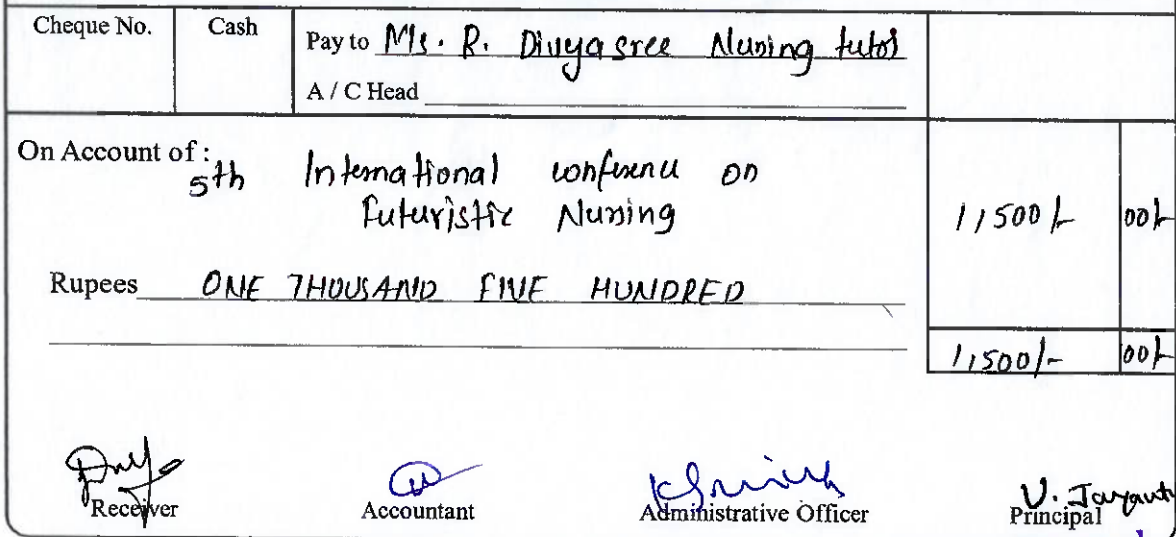 Cheque No.
Cash
Pay to Ms. R. Divyasree Nursing tutor
A / C Head
On Account of :
5th International conference on
Futuristic Nursing
1,500/- 00/-
Rupees ONE THOUSAND FIVE HUNDRED
1,500/- 00/-
Receiver
Accountant
Administrative Officer
V. Jayanth
Principal